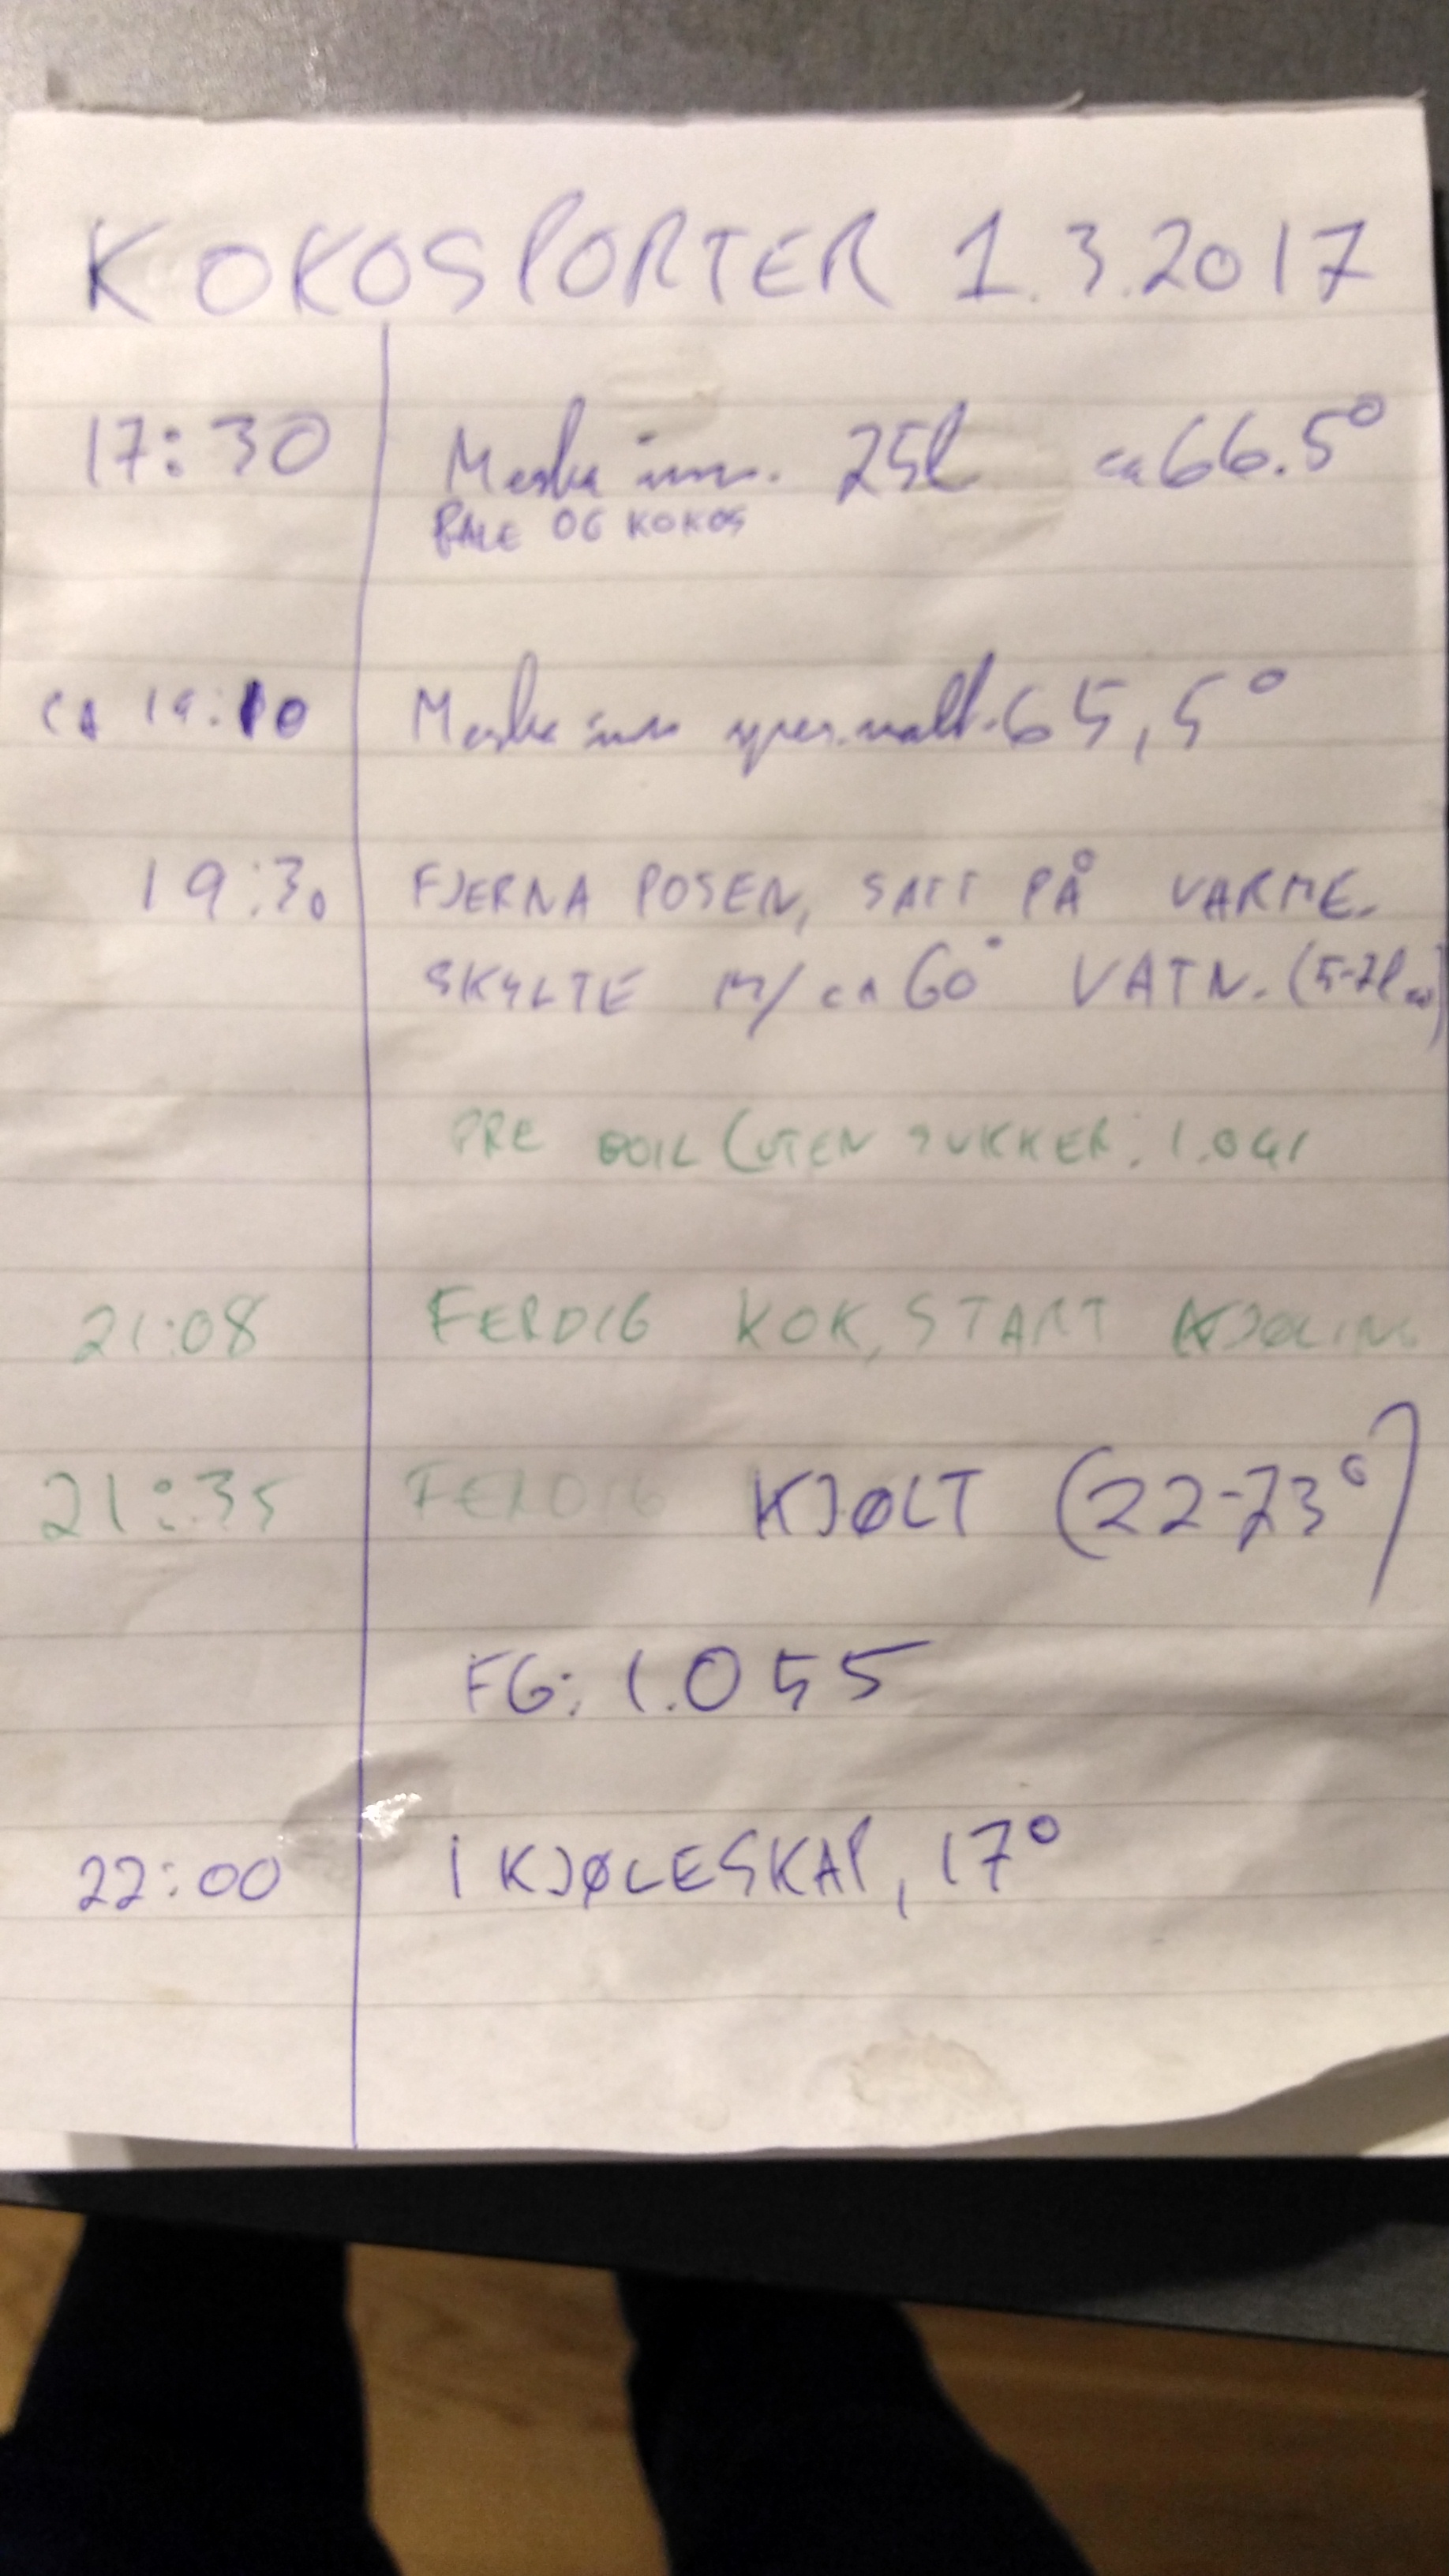 KOKOSPORTER 1.3.2017
17:30 Meska inn. 25l ca 66.5°
PALE OG KOKOS
CA 19:10 Meska inn spes.malt. 65,5°
19:30 FJERNA POSEN, SATT PÅ VARME.
SKYLTE M/ CA 60° VATN. (5-7l ca)
PRE BOIL (UTEN SUKKER: 1.041
21:08 FERDIG KOK, START KJØLING
21:35 FERDIG KJØLT (22-23°)
FG: 1.055
22:00 I KJØLESKAP, 17°